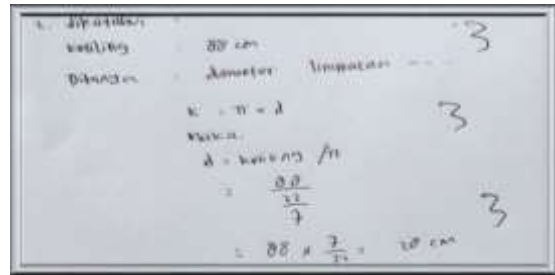 1. diketahui :
keliling : 88 cm 3
Ditanya : diameter lingkaran ---
K = π × d 3
Maka
d = keliling / π
= 88
22
7 3
= 88 × 7/22 = 28 cm